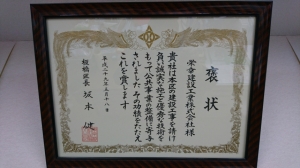 褒状
栄幸建設工業株式会社様
貴社は本区の建設工事を請け
負い誠実な施工と優秀な技術を
もって公共事業の整備に寄与
されましたその功績をたたえ
これを賞します
平成二十九年五月十八日
板橋区長 坂本 健